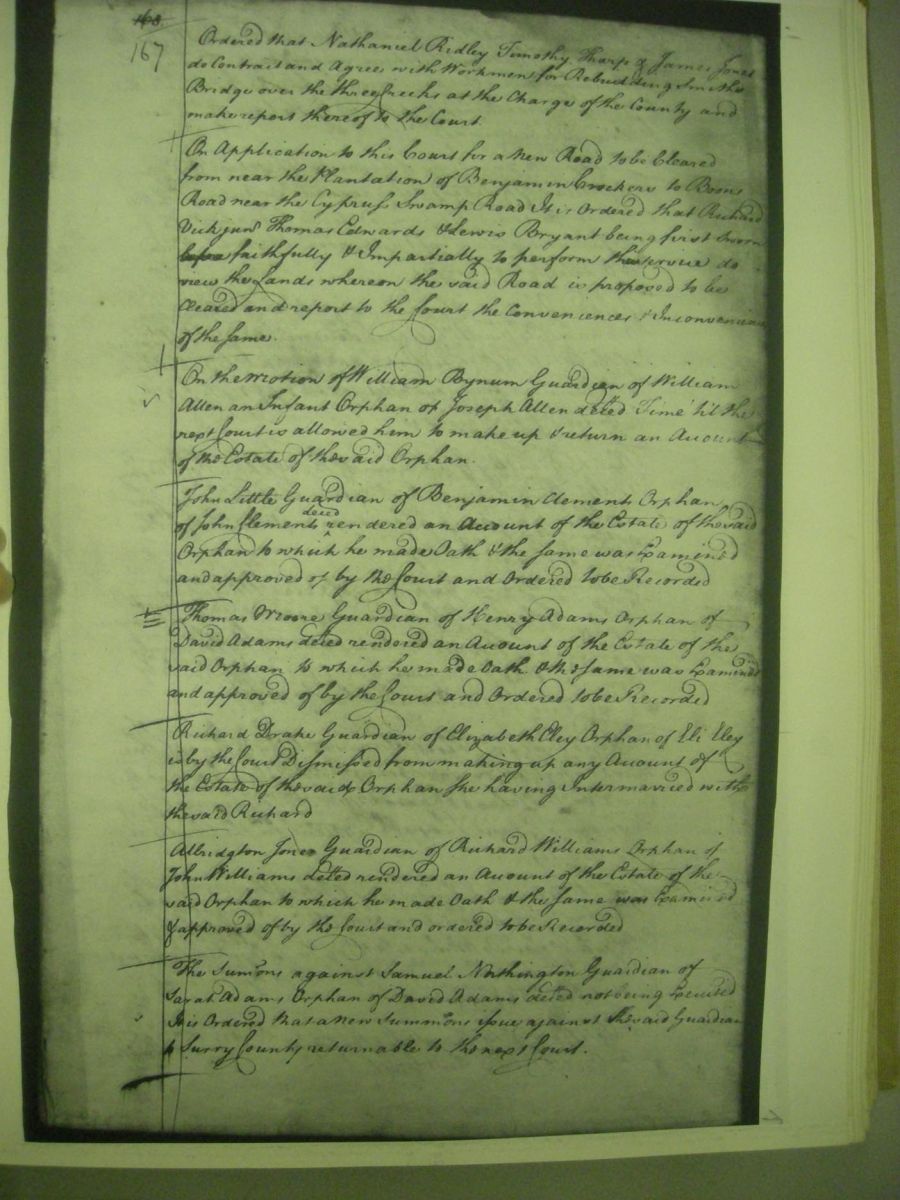 168
167
Ordered that Nathaniel Ridley Timothy Tharp & James Jones
do Contract and Agree with Workmen for Rebuilding Smiths
Bridge over the three Creeks at the Charge of the County and
make report thereof to the Court
On Application to this Court for a New Road to be Cleared
from near the Plantation of Benjamin Crockers to Boons
Road near the Cypruss Swamp Road It is Ordered that Richard
Vick junr Thomas Edwards & Lewis Bryant being first Sworn
before faithfully & Impartially to perform the service do
view the Lands whereon the said Road is proposed to be
Cleared and report to the Court the Conveniences & Inconveniences
of the same.
On the motion of William Bynum Guardian of William
Allen an Infant Orphan of Joseph Allen deced Time 'til the
next Court is allowed him to make up & return an Account
of the Estate of the said Orphan.
John Little Guardian of Benjamin Clements Orphan
of John Clements deced rendered an Account of the Estate of the said
Orphan to which he made Oath & the same was Examined
and approved of by the Court and Ordered to be Recorded
Thomas Moore Guardian of Henry Adams Orphan of
David Adams deced rendered an Account of the Estate of the
said Orphan to which he made Oath & the same was Examined
and approved of by the Court and Ordered to be Recorded
Richard Drake Guardian of Elizabeth Eley Orphan of Eli Eley
is by the Court Dismissed from making up any Account of
the Estate of the said Orphan She having Intermarried with
the said Richard
Albridgton Jones Guardian of Richard Williams Orphan of
John Williams deced rendered an Account of the Estate of the
said Orphan to which he made Oath & the same was Examined
& approved of by the Court and ordered to be Recorded
The Summons against Samuel Northington Guardian of
Sarah Adams Orphan of David Adams deced not being Executed
It is Ordered that a New Summons issue against the said Guardian
to Surry County returnable to the next Court.